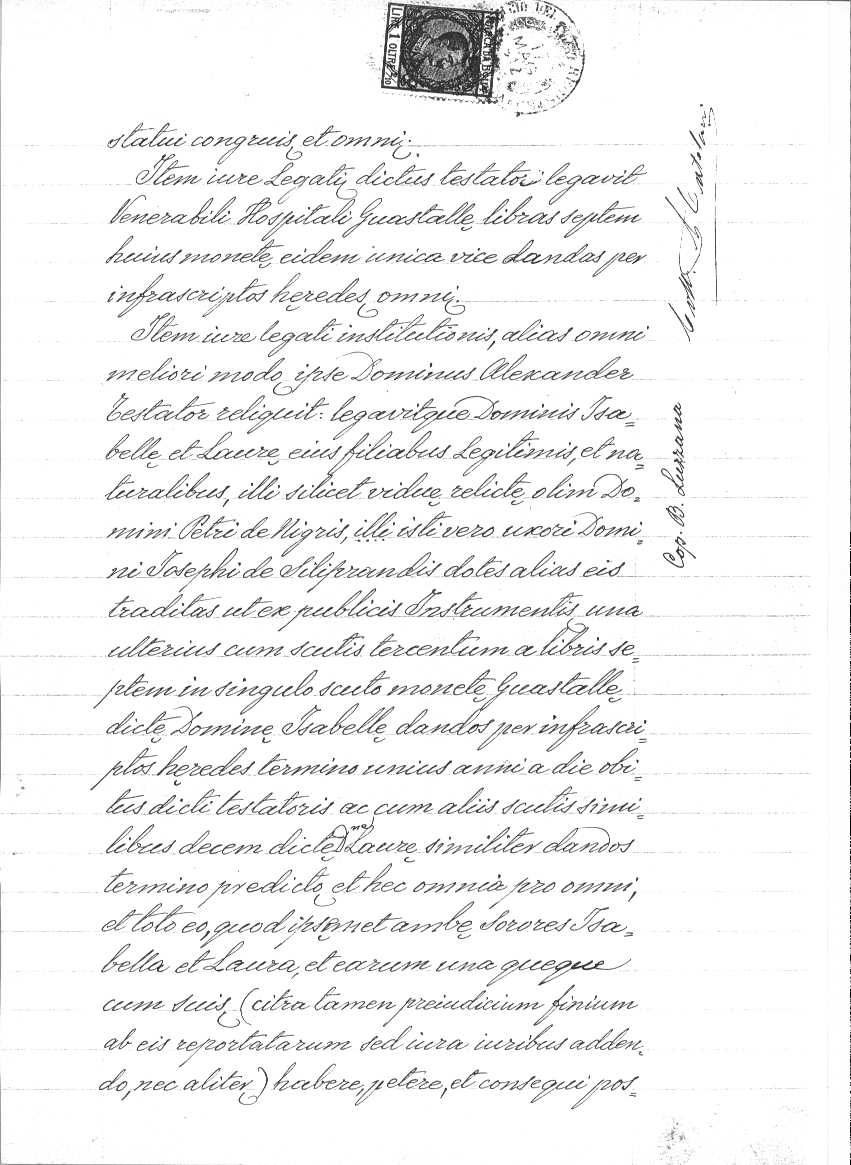 LIRE 1 OLTRE 2/10
statui congruis, et omni;.
Item iure Legati, dictus testator legavit
Venerabili Hospitali Guastallę libras septem
huius monetę, eidem unica vice dandas per
infrascriptos hęredes, omni;.
Item iure legati institutionis, alias omni
meliori modo, ipse Dominus Alexander
Testator reliquit: legavitque Dominis Isa=
bellę et Laurę, eius filiabus Legitimis, et na=
turalibus, illi silicet viduę, relictę, olim Do=
mini Petri de Nigris, illi isti vero uxori Domi=
ni Josephi de Siliprandis dotes alias eis
traditas ut ex publicis Instrumentis, una
ulterius cum scutis tercentum a libris se=
ptem in singulo scuto monetę Guastallę,
dictę Dominę Isabellę dandos per infrascri=
ptos hęredes termino unius anni a die obi=
tus dicti testatoris ac cum aliis scutis simi=
libus decem dictę D.ne Laurę similiter dandos
termino predicto, et hec omnia pro omni,
et toto eo, quod ipsęmet ambę Sorores Isa=
bella et Laura, et earum una queque
cum suis, (citra tamen preiudicium finium
ab eis reportatarum sed iura iuribus adden=
do, nec aliter) habere, petere, et consequi pos=
Cop. B. Luzzana